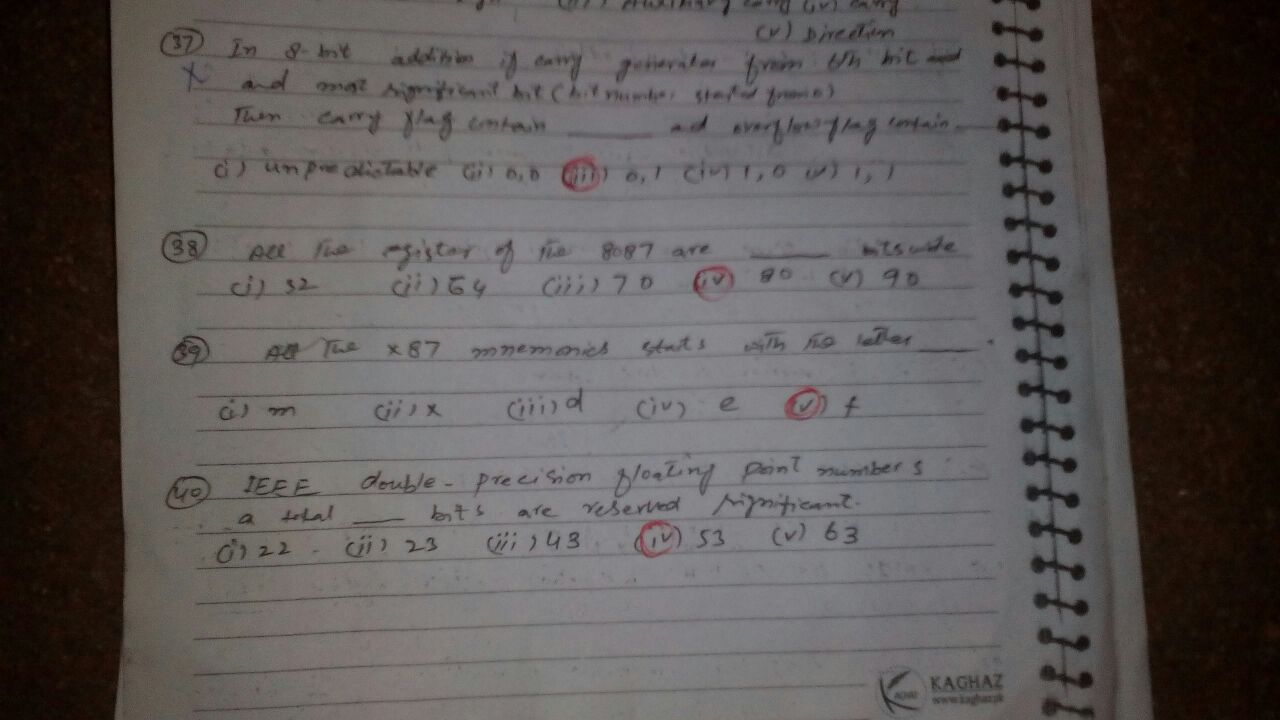 (iv) carry
(v) Direction
(37) In 8-bit addition if carry generates from 6th bit and
X and most significant bit (bit number started from 0)
Then carry flag contain ______ and overflow flag contain
(i) unpredictable (ii) 0,0 (iii) 0,1 (iv) 1,0 (v) 1,1
(38) All The register of The 8087 are ______ bits wide
(i) 32 (ii) 64 (iii) 70 (iv) 80 (v) 90
(39) All The x87 mnemonics stats with The letter ______.
(i) m (ii) x (iii) d (iv) e (v) f
(40) IEEE double-precision floating point numbers
a total ____ bits are reserved significant.
(i) 22 (ii) 23 (iii) 43 (iv) 53 (v) 63
KAGHAZ
www.kaghaz.pk